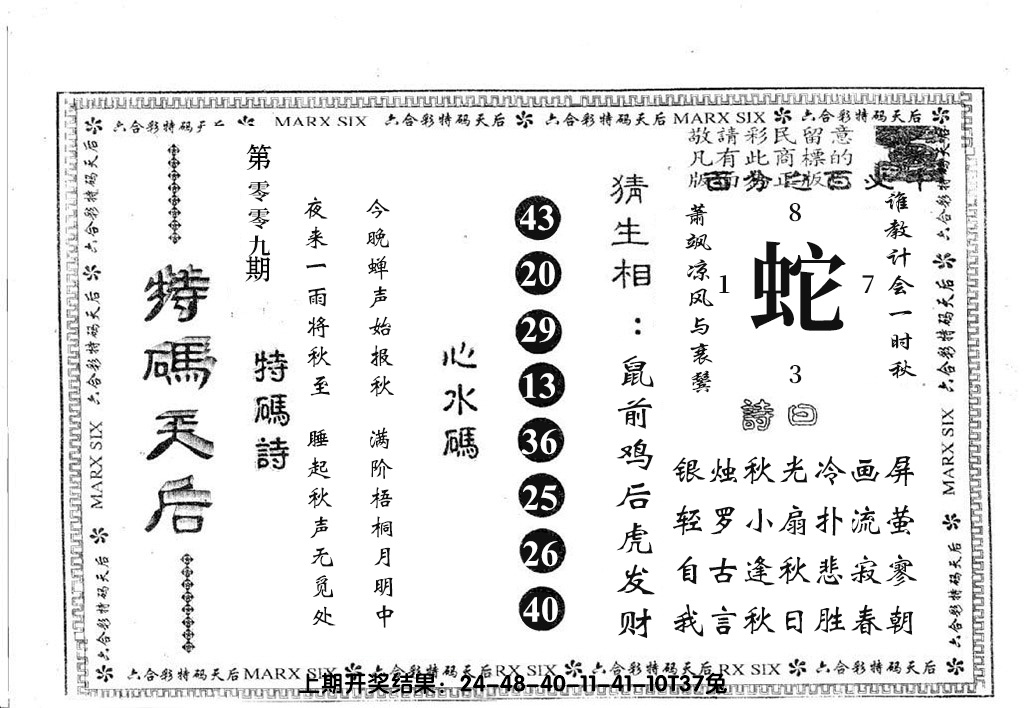 六合彩特码天后 MARX SIX 六合彩特码天后 六合彩特码天后 MARX SIX 六合彩特码天后
敬請彩民留意
凡有此商標的
版面為正版
谁教计会一时秋
8
1 蛇 7
3
萧飒凉风与衰鬓
詩曰
银烛秋光冷画屏
轻罗小扇扑流萤
自古逢秋悲寂寥
我言秋日胜春朝
猜生相：鼠前鸡后虎发财
43
20
29
13
36
25
26
40
心水碼
今晚蝉声始报秋 满阶梧桐月明中
夜来一雨将秋至 睡起秋声无觅处
特碼詩
第零零九期
特碼天后
六合彩特码天后 六合彩特码天后 MARX SIX 六合彩特码天后
六合彩特码天后 六合彩特码天后 MARX SIX 六合彩特码天后
六合彩特码天后 MARX SIX 六合彩特码天后 RX SIX 六合彩特码天后 RX SIX 六合彩特码天后
上期开奖结果：24-48-40-11-41-10T37兔